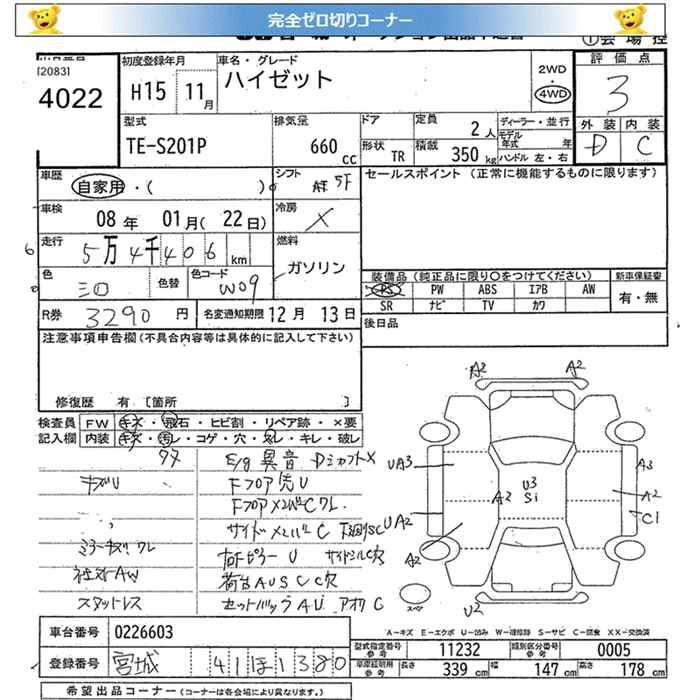 完全ゼロ切りコーナー
[2083]
4022
初度登録年月
H15 11月
車名・グレード
ハイゼット
2WD
・
4WD
評価点
3
外装 内装
D C
型式
TE-S201P
排気量
660 cc
ドア
形状 TR
定員 2人
積載 350 kg
ディーラー・並行
モデル
年式 年
ハンドル 左・右
車歴
自家用・( )
シフト
5F
車検
08年 01月(22日)
冷房
X
走行
5万4千406km
燃料
ガソリン
色
色替
色コード
W09
R券
3290円
名変通知期限 12月 13日
セールスポイント (正常に機能するものに限ります)
装備品 (純正品に限り○をつけてください)
新車保証書
PS PW ABS エアB AW
SR ナビ TV カワ
有・無
後日品
注意事項申告欄(不具合内容等は具体的に記入して下さい)
修復歴 有 [箇所 ]
検査員 FW キズ・飛石・ヒビ割・リペア跡・×要
記入欄 内装 キズ・汚レ・コゲ・穴・スレ・キレ・破レ
E/g 異音 DシャフトX
キズU
Fフロア先U
サイドメンバーC
スタットレス
A2 A2
UA3 A3
U3
A2 Si A2
UA2 C1
A2
U2
スペア
A-キズ E-エクボ U-凹み W-補修跡 S-サビ C-腐食 XX-交換済
車台番号 0226603
登録番号 宮城 41ほ1380
型式指定番号 参考 11232 類別区分番号 参考 0005
車庫証明用 参考 長さ 339cm 幅 147cm 高さ 178cm
希望出品コーナー (コーナーは各会場により異なります。)